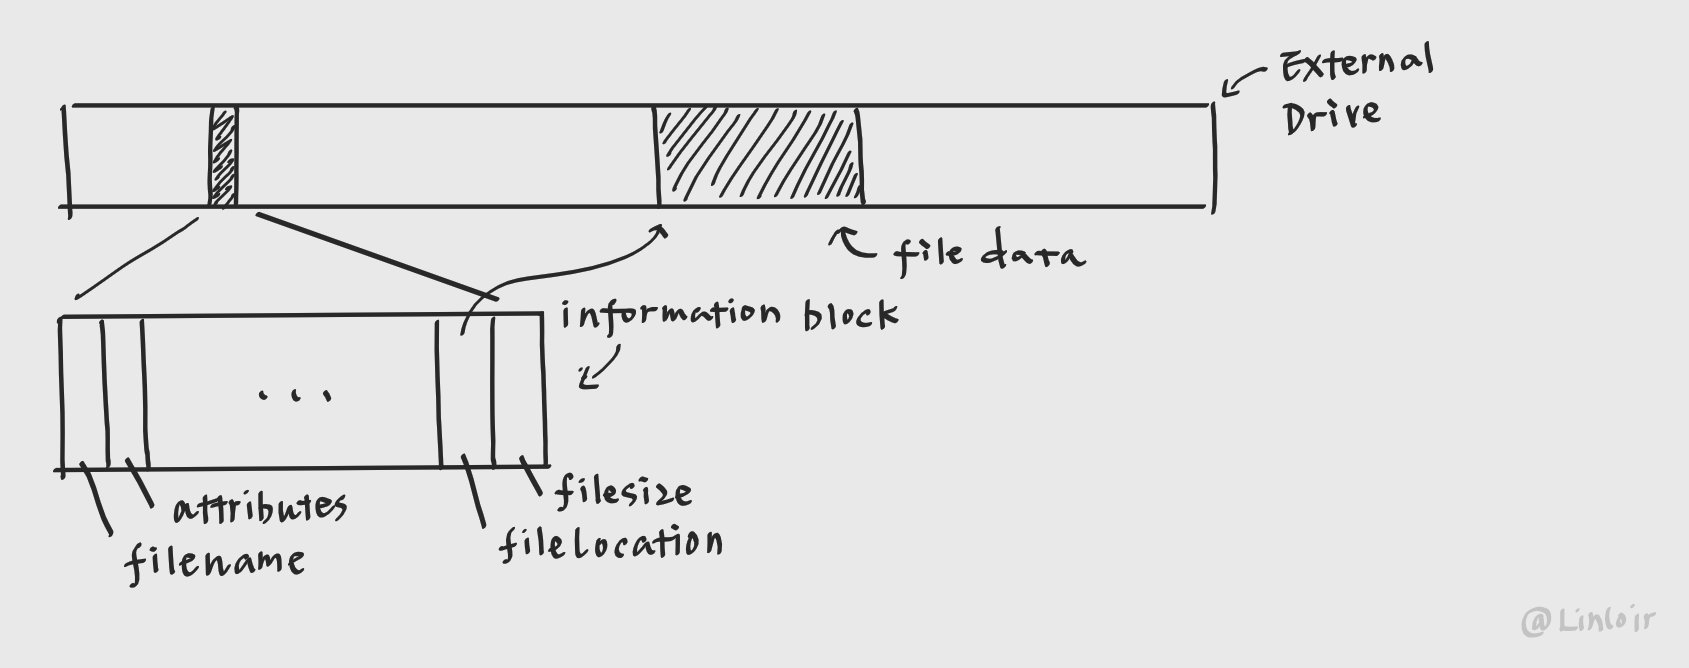 External
Drive
file data
information block
. . .
attributes
filename
filesize
filelocation
@Linloir